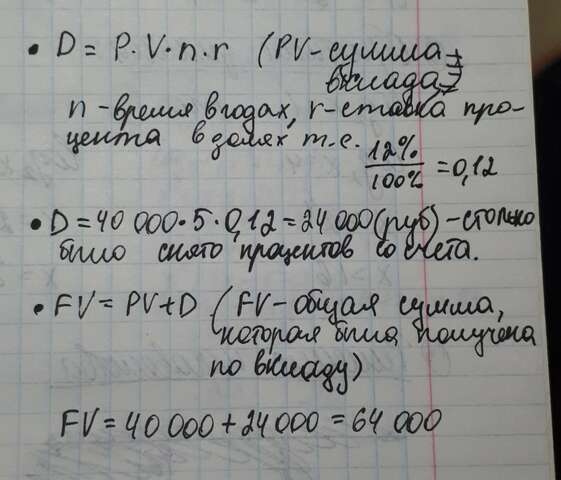 • D = P. V • n • r (PV-сумма
вклада)
n - время в годах, r - ставка про-
цента в долях т.е. 12%/100% = 0,12
• D = 40 000 • 5 • 0,12 = 24 000 (руб) - столько
было снято процентов со счета.
• FV = PV + D (FV - общая сумма,
которая была получена
по вкладу)
FV = 40 000 + 24 000 = 64 000